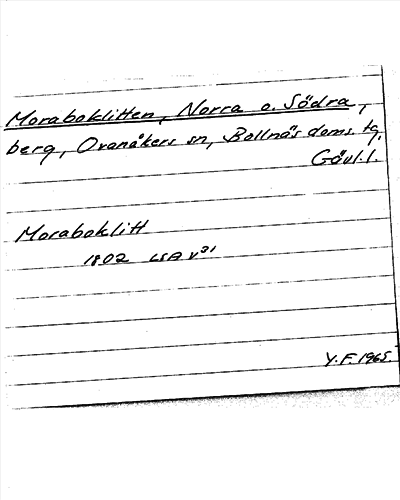 Moraboklitten, Norra o. Södra,
berg, Ovanåkers sn, Bollnäs doms. tg,
Gävl.l.
Moraboklitt
1802 LSA V31
Y.F. 1965.